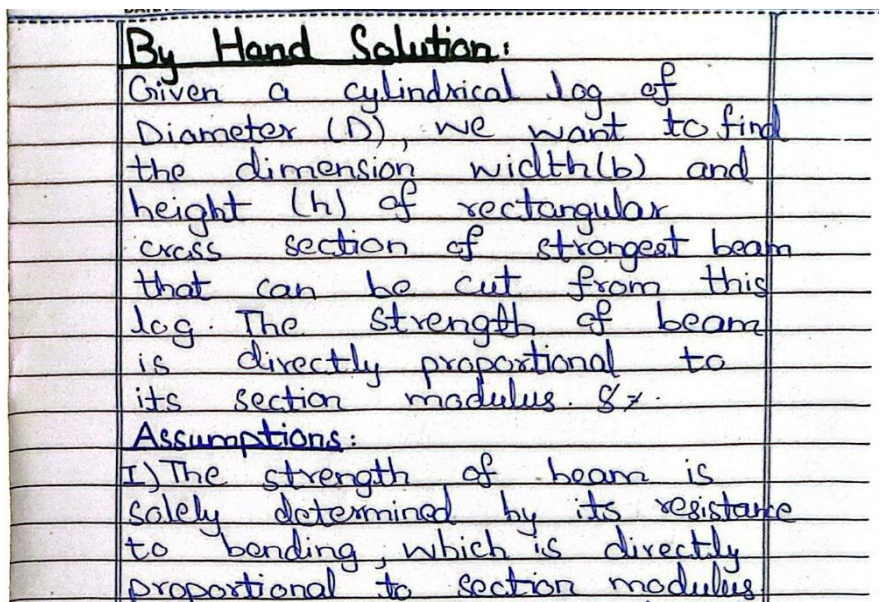 By Hand Solution:
Given a cylindrical log of
Diameter (D), we want to find
the dimension width(b) and
height (h) of rectangular
cross section of strongest beam
that can be cut from this
log. The strength of beam
is directly proportional to
its section modulus.
Assumptions:
I) The strength of beam is
solely determined by its resistance
to bending, which is directly
proportional to section modulus